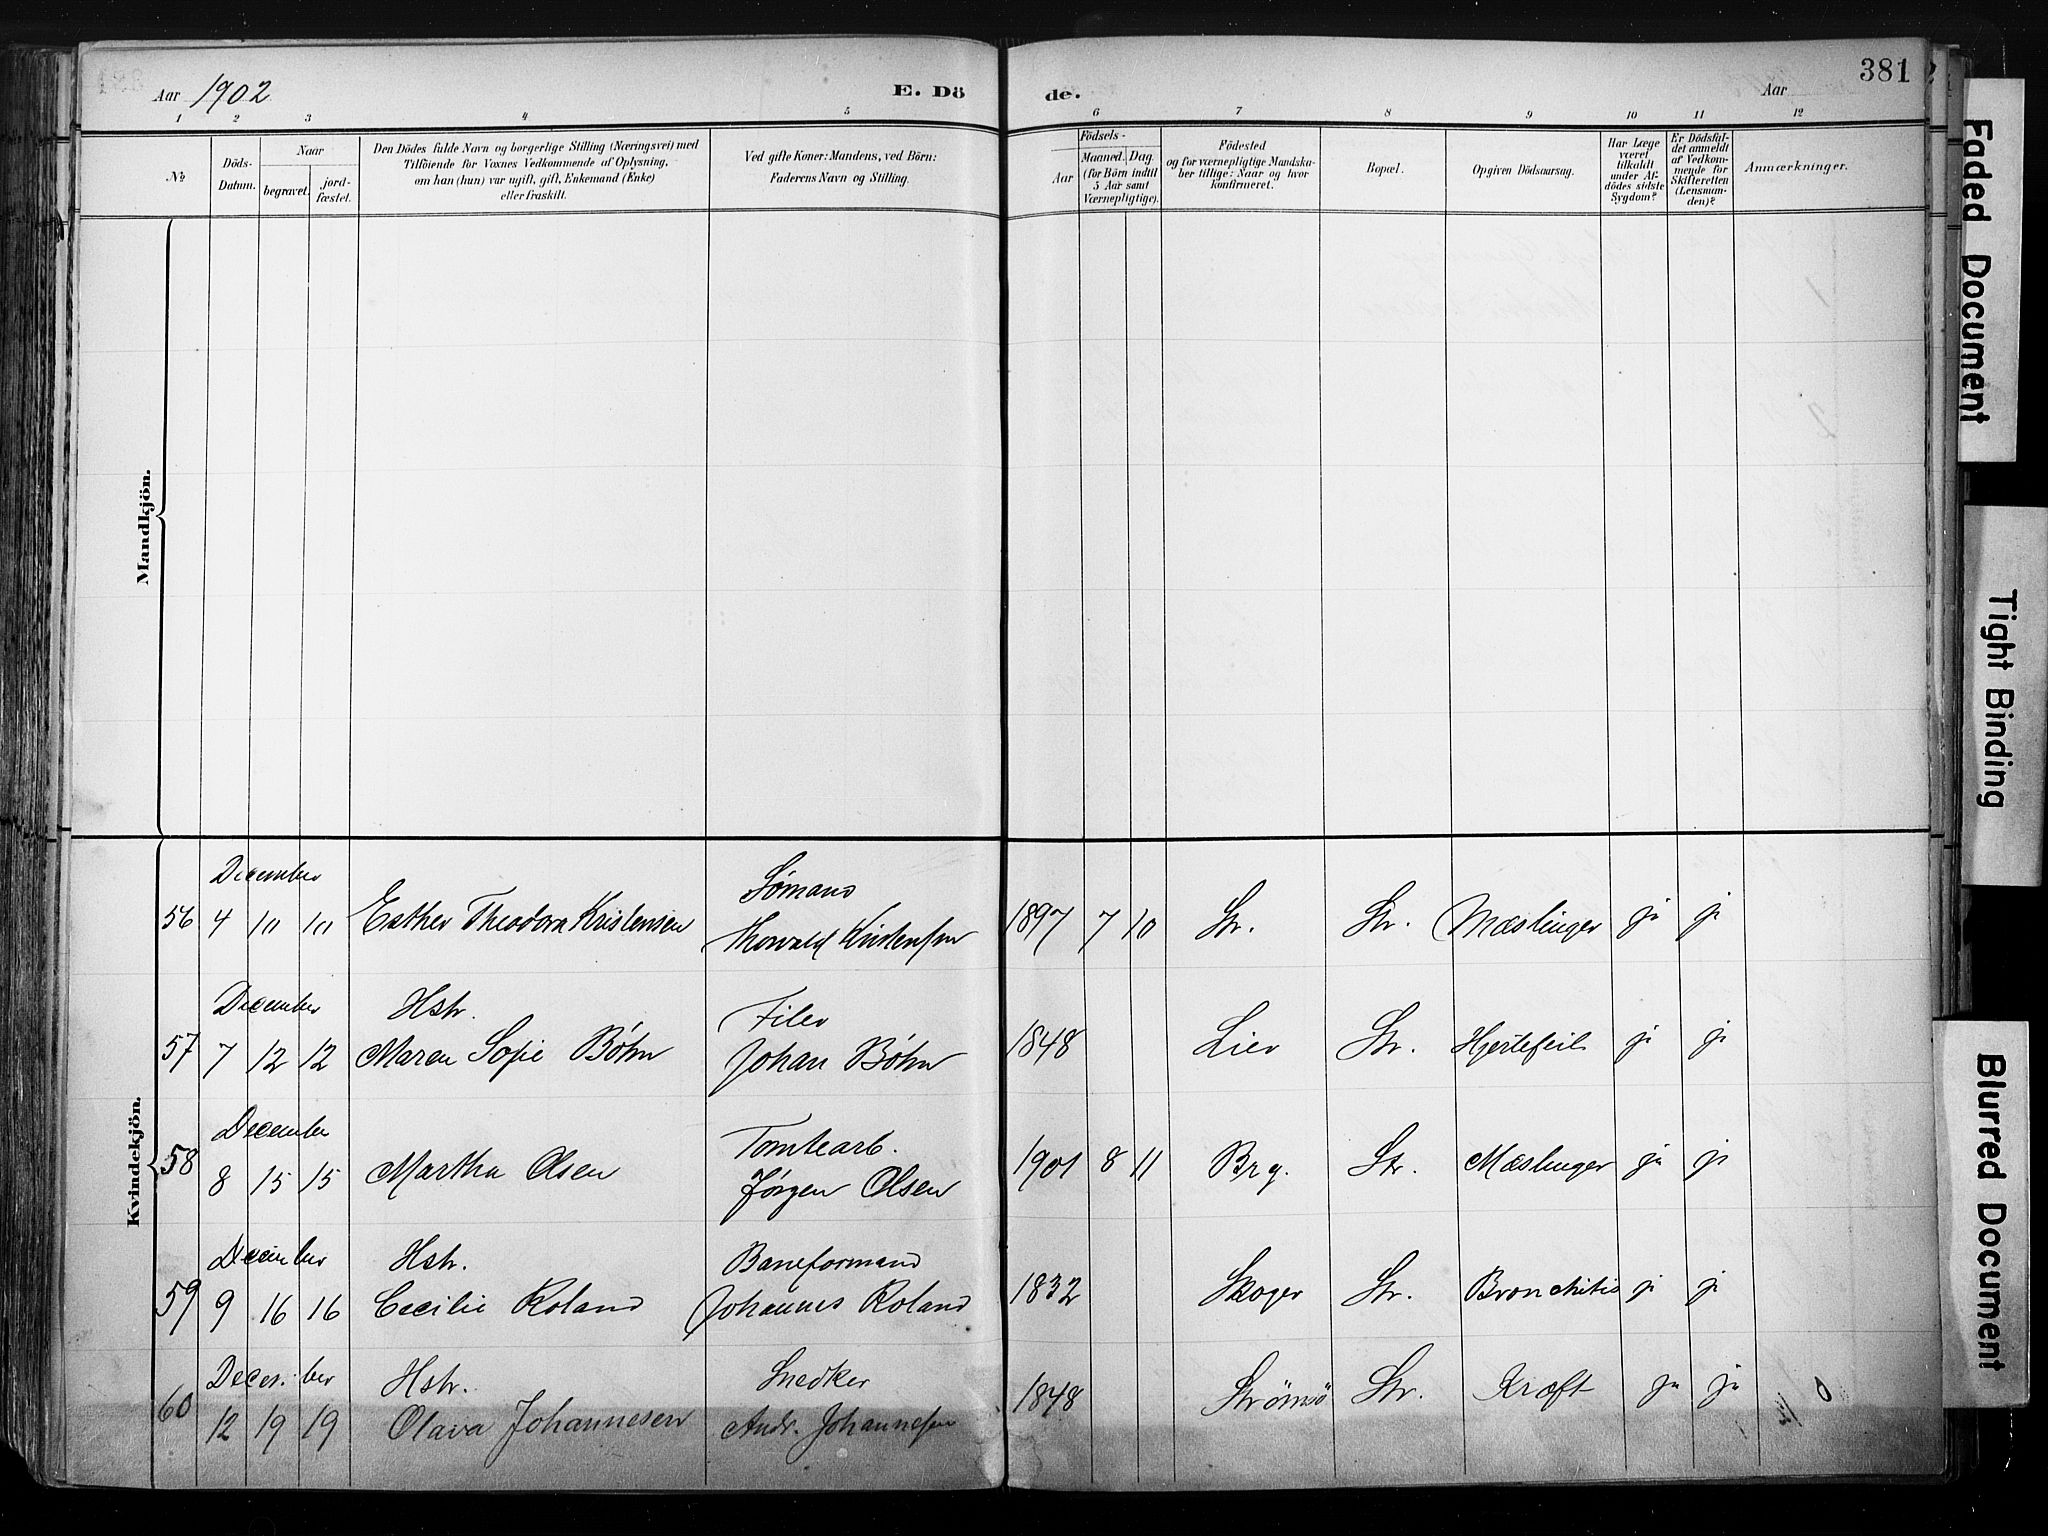 Aar 1902
E. Dö
de.
Aar
381
1 2 3 4 5 6 7 8 9 10 11 12
№
Döds-
Datum.
Naar
begravet.
jord-
fæstet.
Den Dödes fulde Navn og borgerlige Stilling (Næringsvei) med
Tilföiende for Voxnes Vedkommende af Oplysning,
om han (hun) var ugift, gift, Enkemand (Enke)
eller fraskilt.
Ved gifte Koner: Mandens, ved Börn:
Faderens Navn og Stilling.
Födsels-
Aar
Maaned. Dag.
(for Börn indtil
5 Aar samt
Værnepligtige).
Födested
og for værnepligtige Mandska-
ber tillige: Naar og hvor
konfirmeret.
Bopæl.
Opgiven Dödsaarsag.
Har Læge
været
tilkaldt
under Af-
dödes sidste
Sygdom?
Er Dödsfal-
det anmeldt
af Vedkom-
mende for
Skifteretten
(Lensman-
den)?
Anmærkninger.
Mandkjön.
Kvindekjön.
December
Sømand
56 4 10 10 Esther Theodora Kristensen Thorvald Kristensen 1897 7 10 Str. Str. Mæslinger ja ja
December Hstr. Filer
57 7 12 12 Maren Sofie Bøhn Johan Bøhn 1848 Lier Str. Hjertefeil ja ja
December Tomtearb.
58 8 15 15 Martha Olsen Jørgen Olsen 1901 8 11 Brg. Str. Mæslinger ja ja
December Hstr. Baneformand
59 9 16 16 Cecilie Roland Johannes Roland 1832 Skoger Str. Bronchitis ja ja
December Hstr. Snedker
60 12 19 19 Olava Johannesen Andr. Johannesen 1848 Strömsö Str. Kræft ja ja
Faded Document
Tight Binding
Blurred Document